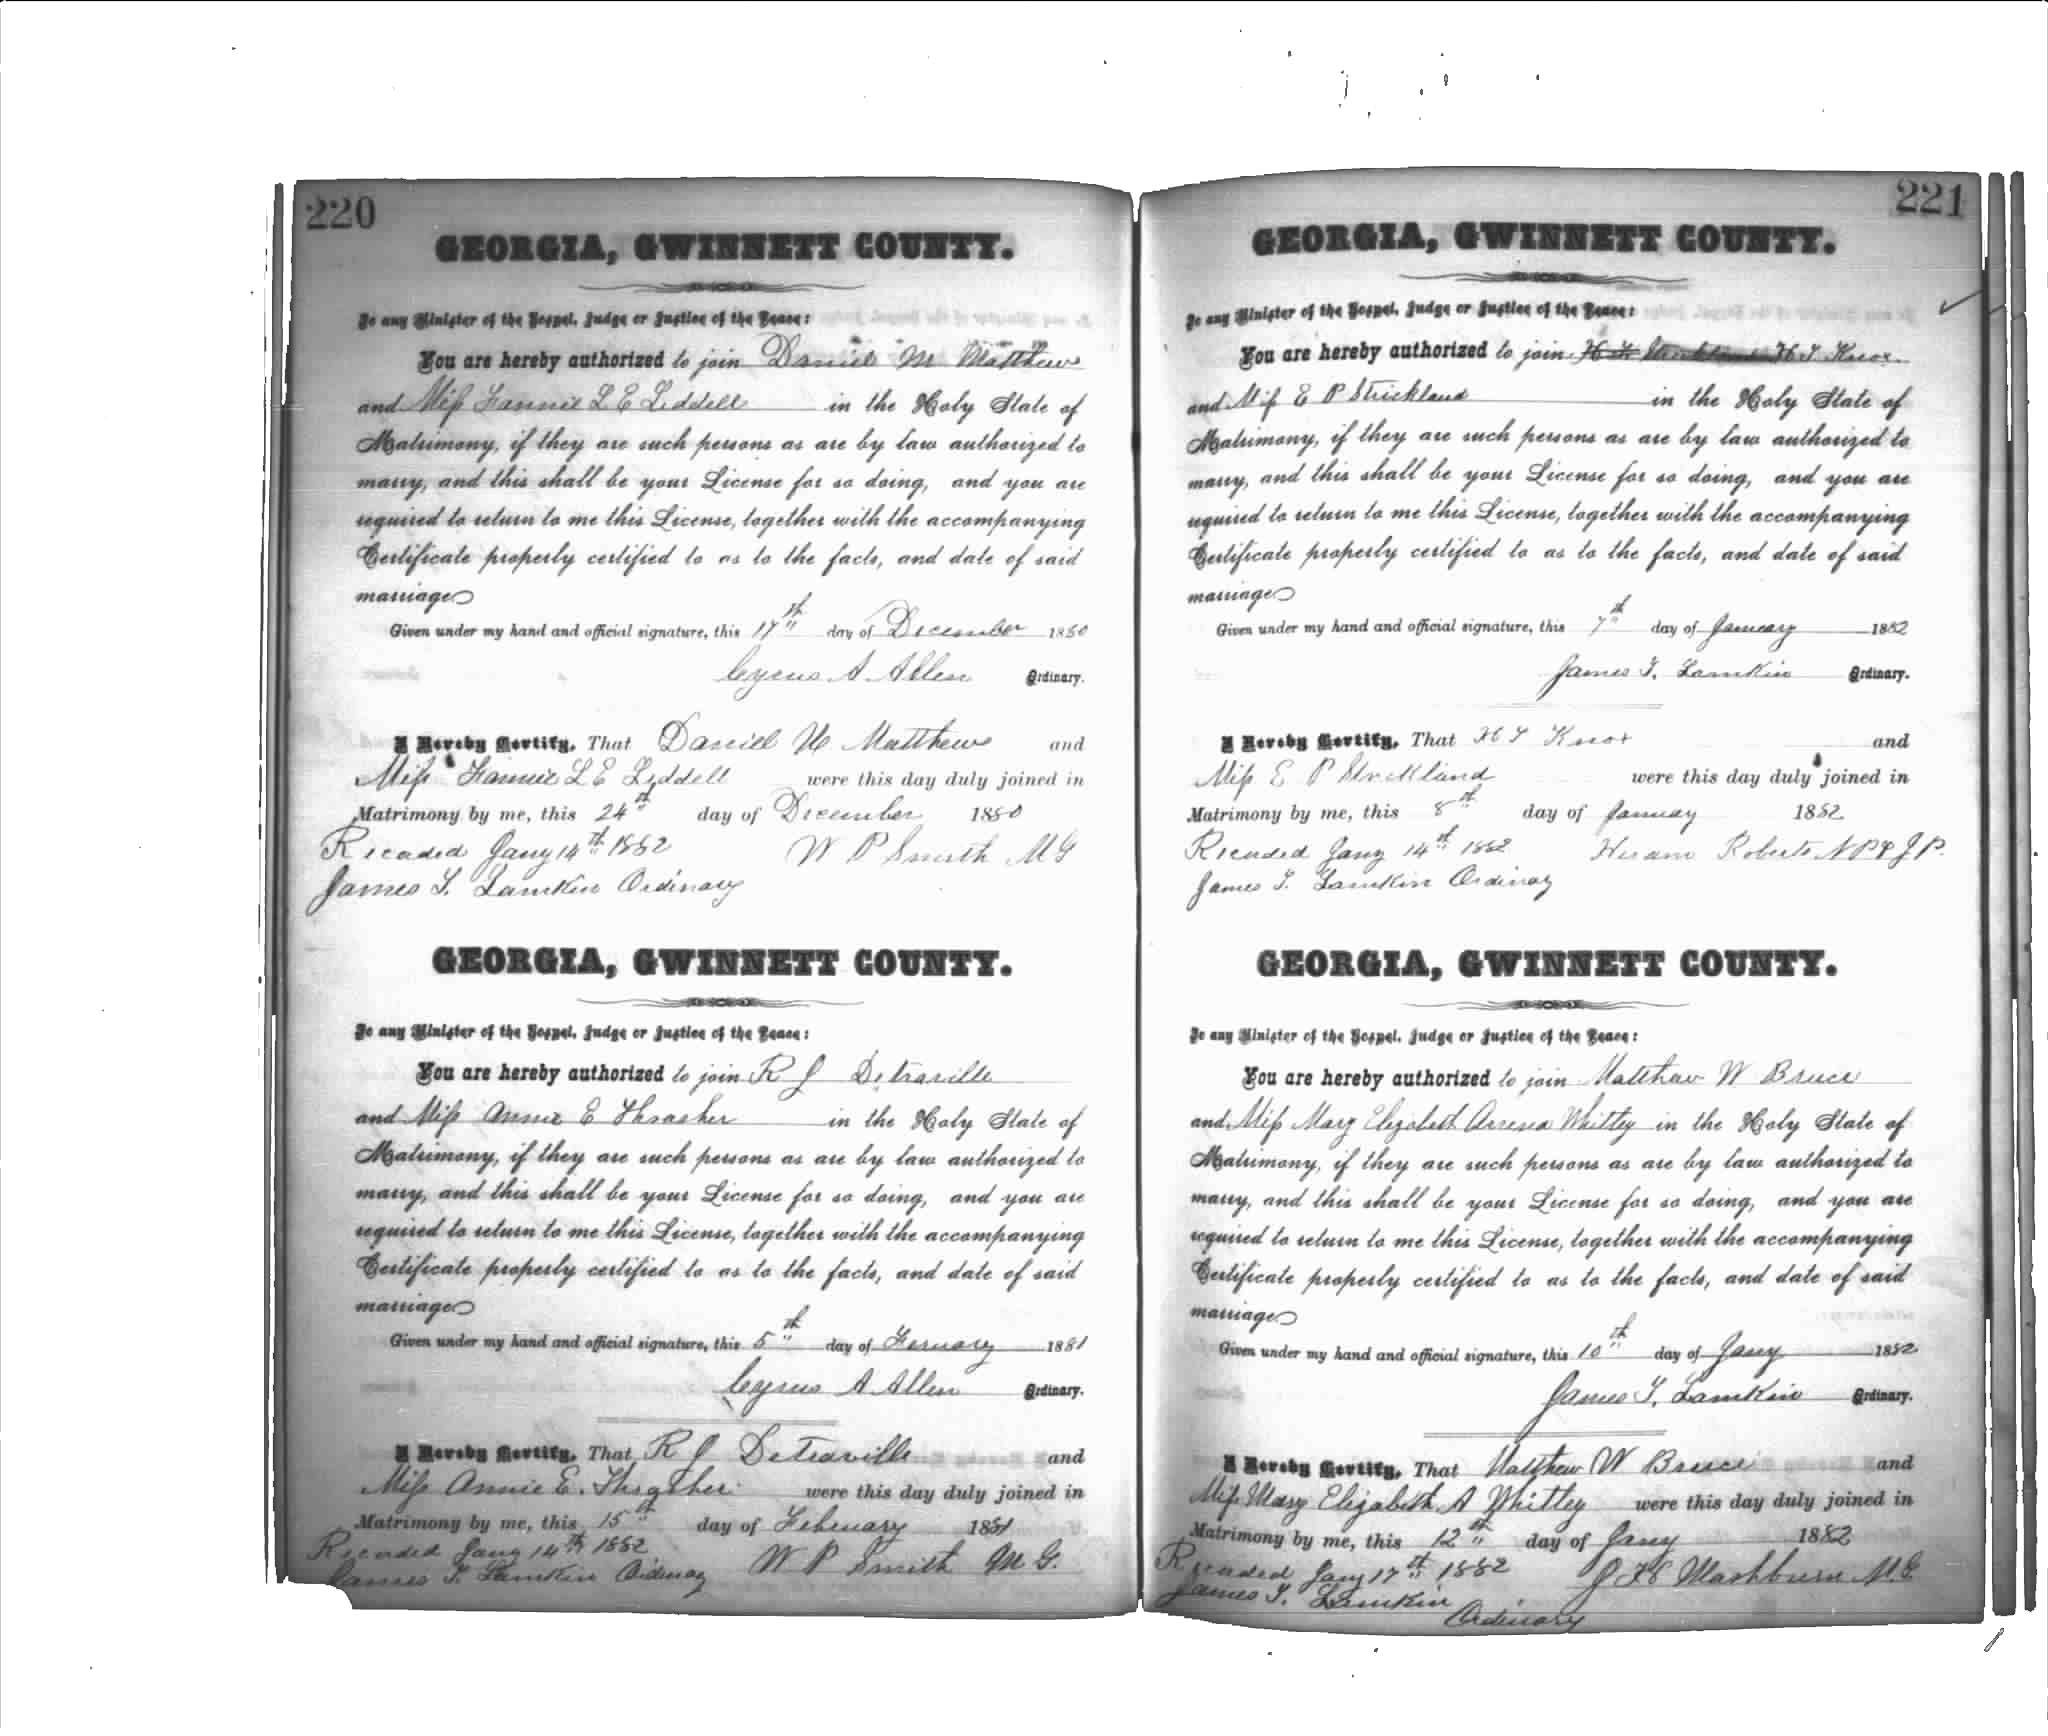 220
GEORGIA, GWINNETT COUNTY.
To any Minister of the Gospel, Judge or Justice of the Peace:
You are hereby authorized to join Daniel M Matthews
and Miss Fannie L E Liddell in the Holy State of
Matrimony, if they are such persons as are by law authorized to
marry, and this shall be your License for so doing, and you are
required to return to me this License, together with the accompanying
Certificate properly certified to as to the facts, and date of said
marriage
Given under my hand and official signature, this 17th day of December 1880
Cyrus A Allen Ordinary.
I Hereby Certify, That Daniel M Matthews and
Miss Fannie L E Liddell were this day duly joined in
Matrimony by me, this 24th day of December 1880
Recorded Jany 14th 1882 W P Smith M G
James T. Lamkin Ordinary
GEORGIA, GWINNETT COUNTY.
To any Minister of the Gospel, Judge or Justice of the Peace:
You are hereby authorized to join R J Detraville
and Miss Annie E Thrasher in the Holy State of
Matrimony, if they are such persons as are by law authorized to
marry, and this shall be your License for so doing, and you are
required to return to me this License, together with the accompanying
Certificate properly certified to as to the facts, and date of said
marriage
Given under my hand and official signature, this 5th day of Feruary 1881
Cyrus A Allen Ordinary.
I Hereby Certify, That R J Detraville and
Miss Annie E. Thrasher were this day duly joined in
Matrimony by me, this 15th day of February 1881
Recorded Jany 14th 1882 W P Smith M G.
James T. Lamkin Ordinary
221
GEORGIA, GWINNETT COUNTY.
To any Minister of the Gospel, Judge or Justice of the Peace:
You are hereby authorized to join H T Knox
and Miss E P Strickland in the Holy State of
Matrimony, if they are such persons as are by law authorized to
marry, and this shall be your License for so doing, and you are
required to return to me this License, together with the accompanying
Certificate properly certified to as to the facts, and date of said
marriage
Given under my hand and official signature, this 7th day of January 1882
James T. Lamkin Ordinary.
I Hereby Certify, That H T Knox and
Miss E P Strickland were this day duly joined in
Matrimony by me, this 8th day of January 1882
Recorded Jany 14th 1882 Hiram Roberts N P & J P.
James T. Lamkin Ordinary
GEORGIA, GWINNETT COUNTY.
To any Minister of the Gospel, Judge or Justice of the Peace:
You are hereby authorized to join Matthew W Bruce
and Miss Mary Elizabeth Arrena Whitley in the Holy State of
Matrimony, if they are such persons as are by law authorized to
marry, and this shall be your License for so doing, and you are
required to return to me this License, together with the accompanying
Certificate properly certified to as to the facts, and date of said
marriage
Given under my hand and official signature, this 10th day of Jany 1882
James T. Lamkin Ordinary.
I Hereby Certify, That Matthew W Bruce and
Miss Mary Elizabeth A Whitley were this day duly joined in
Matrimony by me, this 12th day of Jany 1882
Recorded Jany 17th 1882 Washburn M. G.
James T. Lamkin
Ordinary